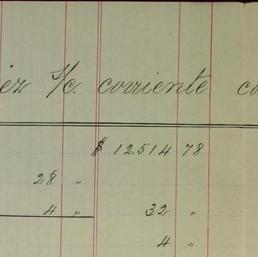 ez s/c. corriente co
$ 12.514 78
28 "
4 " 32 "
4 "